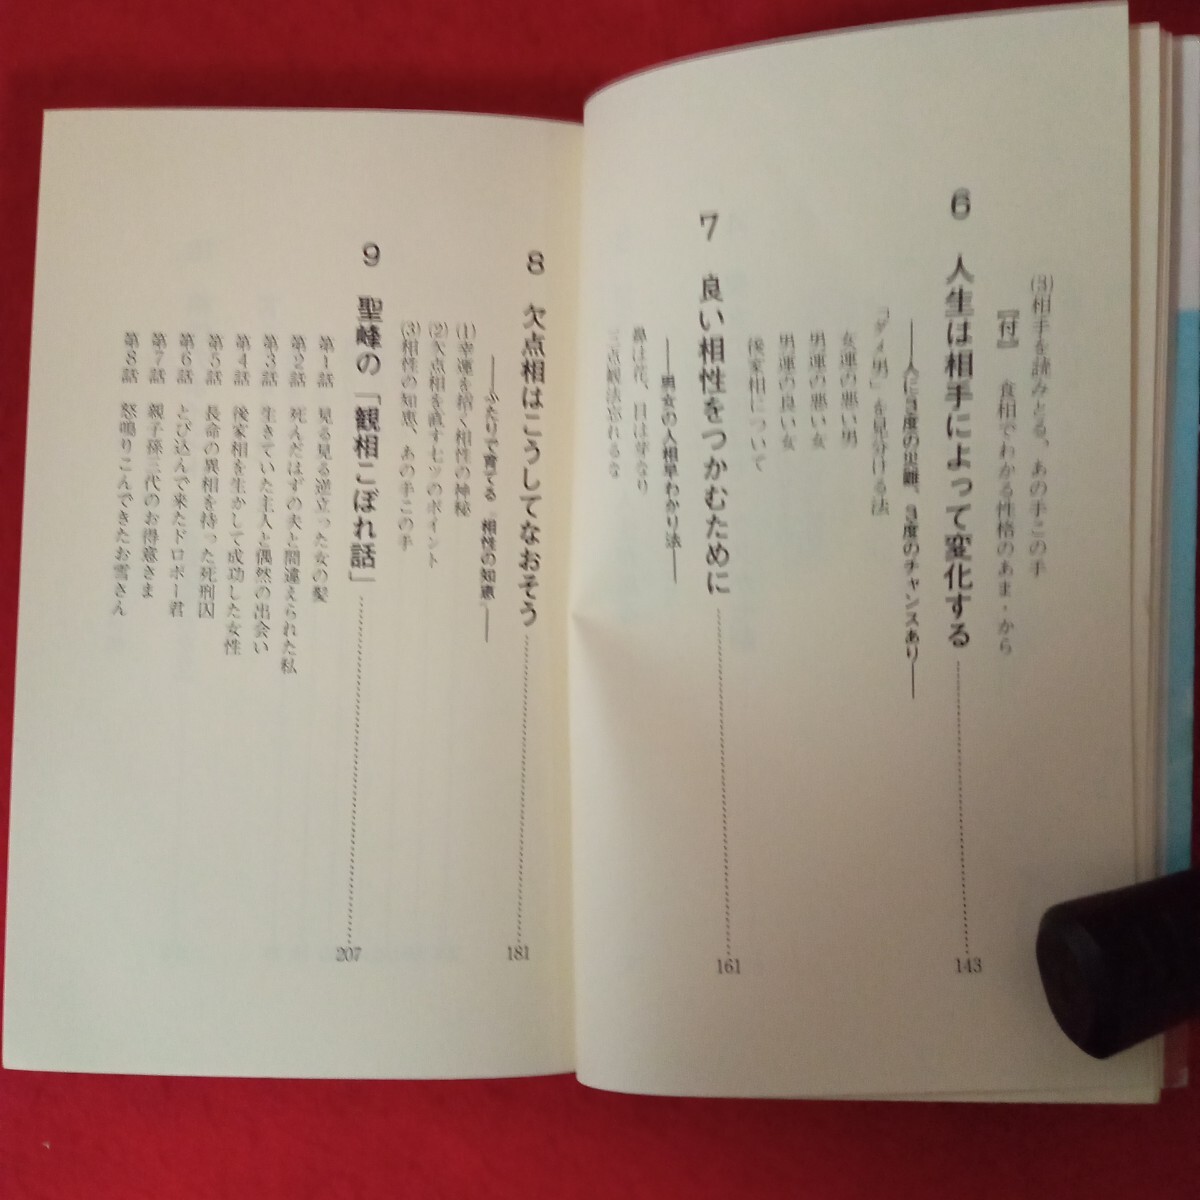 (3)相手を読みとる、あの手この手
『付』 食相でわかる性格のあま・から
6 人生は相手によって変化する 143
――人に3度の災難、3度のチャンスあり――
「ダメ男」を見分ける法
女運の悪い男
男運の悪い女
男運の良い女
後家相について
7 良い相性をつかむために 161
――男女の人相早わかり法――
鼻は花、目は芽なり
三点観法忘れるな
8 欠点相はこうしてなおそう 181
――ふたりで育てる「相性の知恵」――
(1)幸運を招く相性の神秘
(2)欠点相を直す七ツのポイント
(3)相性の知恵、あの手この手
9 聖峰の「観相こぼれ話」 207
第1話 見る見る逆立った女の髪
第2話 死んだはずの夫と間違えられた私
第3話 生きていた主人と偶然の出会い
第4話 後家相を生かして成功した女性
第5話 長命の異相を持った死刑囚
第6話 とび込んで来たドロボー君
第7話 親子孫三代のお得意さま
第8話 怒鳴りこんできたお雪さん